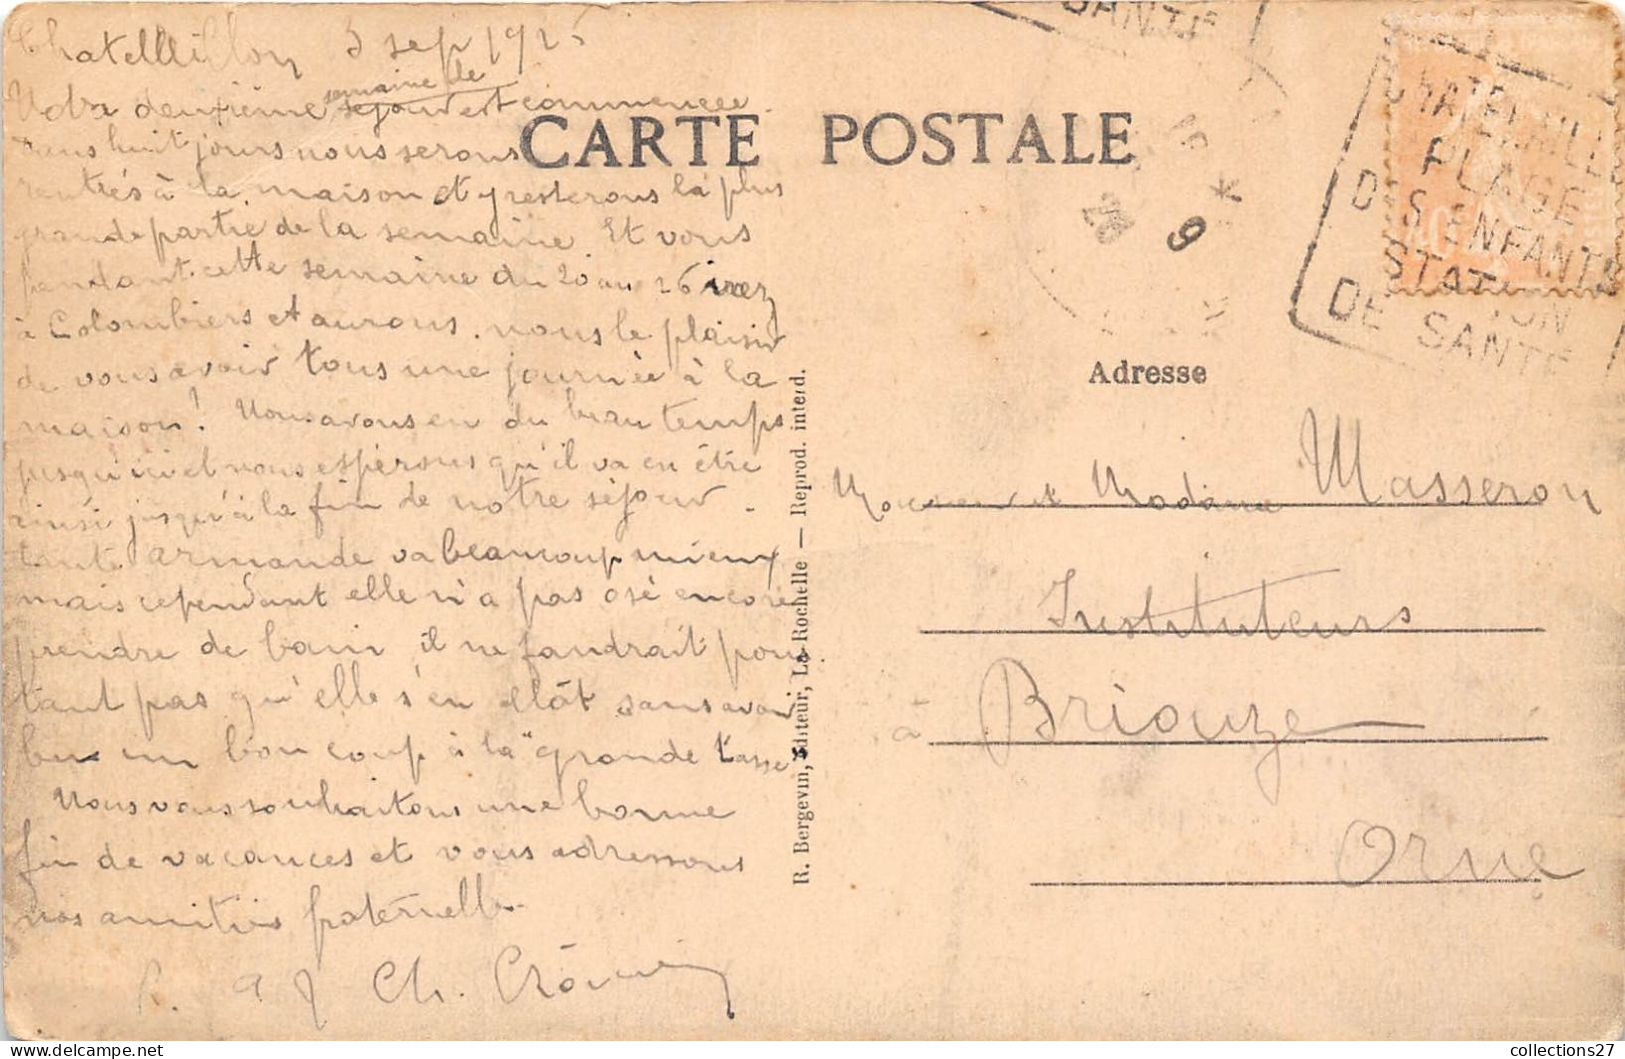 Chatelleillon 3 sep 1925
Notre deuxième semaine de séjour est commencée
Dans huit jours nous serons
rentrés à la maison et y resterons la plus
grande partie de la semaine. Et vous
pendant cette semaine du 20 au 26 irez
à Colombiers et aurons nous le plaisir
de vous avoir tous une journée à la
maison! Nous avons eu du beau temps
jusqu'ici et nous espérons qu'il va en être
ainsi jusqu'à la fin de notre séjour.
tante armande va beaucoup mieux
mais cependant elle n'a pas osé encore
prendre de bain il ne faudrait pour
tant pas qu'elle s'en allât sans avoir
bu un bon coup à la "grande tasse
Nous vous souhaitons une bonne
fin de vacances et vous adressons
nos amitiés fraternelles.
Ch.
CARTE POSTALE
R. Bergevin, Editeur, La Rochelle — Reprod. interd.
SANTE
CHATELAILLON
PLAGE
DES ENFANTS
STATION
DE SANTE
Adresse
Monsieur et Madame Masseron
Instituteurs
à Briouze
Orne
collections27